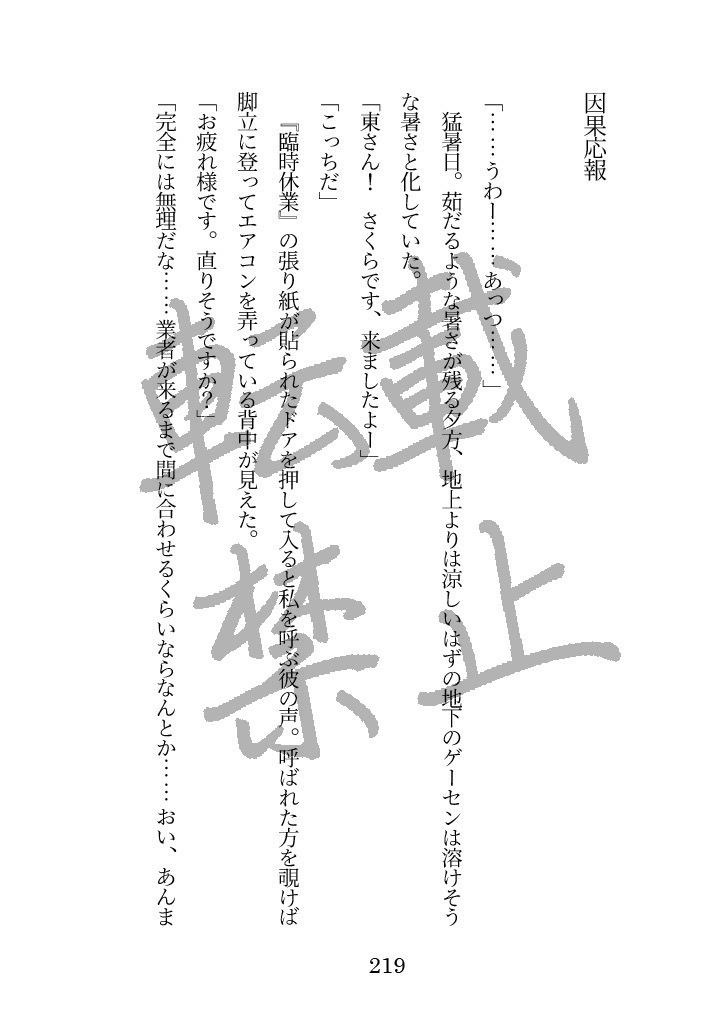 因果応報
「……うわー……あっつ……」
猛暑日。茹だるような暑さが残る夕方、地上よりは涼しいはずの地下のゲーセンは溶けそう
な暑さと化していた。
「東さん！　さくらです、来ましたよー」
「こっちだ」
『臨時休業』の張り紙が貼られたドアを押して入ると私を呼ぶ彼の声。呼ばれた方を覗けば
脚立に登ってエアコンを弄っている背中が見えた。
「お疲れ様です。直りそうですか？」
「完全には無理だな……業者が来るまで間に合わせるくらいならなんとか……おい、あんま
転載
禁止
219